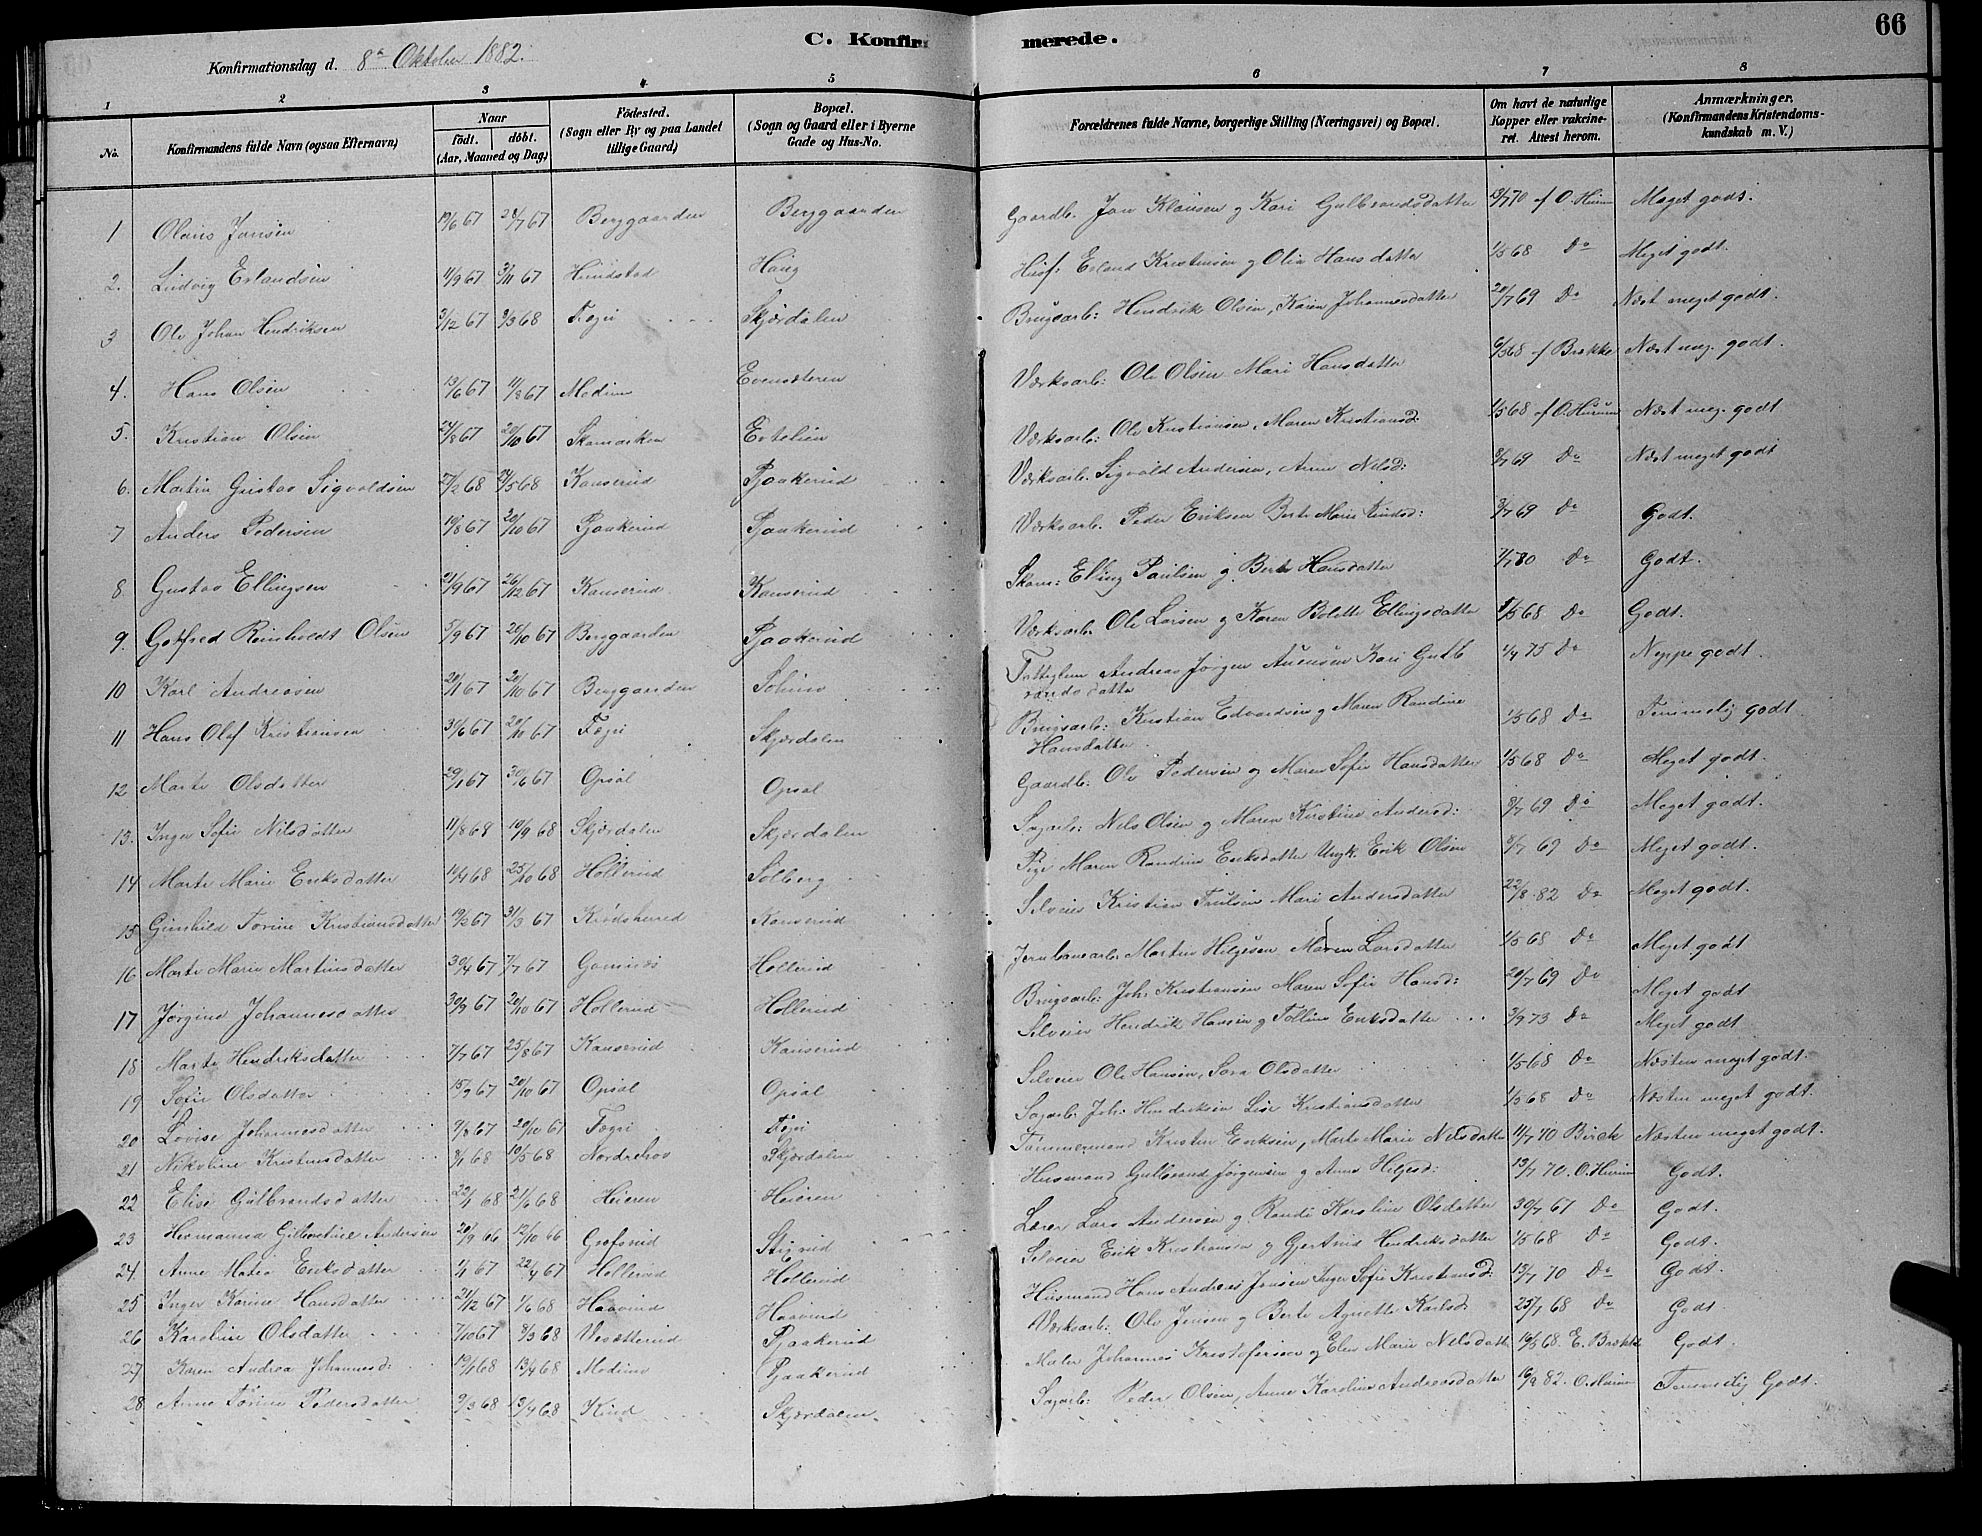 66
C. Konfirmerede.
Konfirmationsdag d. 8de Oktober 1882.
1 2 3 4 5 6 7 8
No. Konfirmandens fulde Navn (ogsaa Efternavn) Naar født. døbt. (Aar, Maaned og Dag) Fødested. (Sogn eller By og paa Landet tillige Gaard) Bopæl. (Sogn og Gaard eller i Byerne Gade og Hus-No. Forældrenes fulde Navne, borgerlige Stilling (Næringsvei) og Bopæl. Om havt de naturlige Kopper eller vaksineret. Attest herom. Anmærkninger. (Konfirmandens Kristendomskundskab m. V.)
1 Olaus Jansen 19/6 67 28/7 67 Berggaarden Berggaarden Gaardb. Jan Klausen og Kari Gulbrandsdatter 13/7 70 af O. Hurum Meget godt.
2. Ludvig Erlandsen 11/9 67 3/11 67 Hundstad Haug Husf: Erland Kristensen og Olia Hansdatter 1/5 68 Do Meget godt.
3 Ole Johan Hendriksen 3/12 67 9/3 68 Fegri Skjærdalen Brugsarb: Hendrik Olsen, Karen Johannesdatter 20/7 69 Do Næst meget godt.
4. Hans Olsen 13/6 67 11/8 67 Modum Evensæteren Værksarb: Ole Olsen Mari Hansdatter 6/5 68 af Brække Næst meg. godt.
5. Kristian Olsen 24/8 67 20/10 67 Skamarken Værksarb: Ole Kristiansen, Maren Kristiansd. 1/5 68 af O. Hurum Næst meg. godt
6. Martin Gustav Sigvaldsen 27/2 68 24/5 68 Kanserud Pjaakerud Værksarb. Sigvald Andersen, Anne Nilsd: 3/7 69 Do Næst meget godt
7 Anders Pedersen 19/8 67 20/10 67 Pjaakerud Pjaakerud Værksarb. Peder Eriksen Berte Marie 3/7 69 Do Godt.
8. Gustav Ellingsen 21/9 67 26/12 67 Kanserud Kanserud Skom: Elling Paulsen og Berte Hansdatter 7/7 80 Do Godt.
9. Gotfred Reinholdt Olsen 5/9 67 20/10 67 Berggaarden Pjaakerud Værksarb. Ole Larsen og Karen Bolette Ellingsdatter 1/5 68 Do Godt.
10 Karl Andreasen 20/1 67 20/10 67 Berggaarden Andreas Jørgen Kari Gulbrandsdatter 1/4 75 Do Neppe godt.
11 Hans Olaf Kristiansen 30/6 67 20/10 67 Fegri Skjærdalen Brugsarb: Kristian Edvardsen og Maren Randine Hansdatter 1/5 68 Do Temmelig godt
12 Marte Olsdatter 29/1 67 30/6 67 Opsal Opsal Gaardb: Ole Pedersen og Maren Sofie Hansdatter 1/5 68 Do Meget godt.
13. Inger Sofie Nilsdatter 11/8 68 10/9 68 Skjærdalen Skjærdalen Sagarb: Nels Olsen og Maren Kirstine Andersd: 8/7 69 Do Meget godt.
14 Marte Marie Eriksdatter 19/4 68 25/10 68 Hollerud Solberg Pige Maren Randine Eriksdatter Ungk. Erik Olsen 8/7 69 Do Meget godt.
15 Gunhild Torine Kristiansdatter 19/2 67 31/3 67 Krødsherred Kanserud Selveier Kristian Paulsen Mari Andersdatter 22/8 82 Do Meget godt.
16 Marte Marie Martinsdatter 30/4 67 7/7 67 Gomnæs Hollerud Jernbanearb. Martin Helgesen Maren Larsdatter 1/5 68 Do Meget godt
17 Jørgine Johannesdatter 30/9 67 20/10 67 Hollerud Hollerud Brugsarb: Joh: Kristiansen Maren Sofie Hansd: 20/7 69 Do Meget godt
18 Marte Hendriksdatter 7/7 67 25/8 67 Kanserud Kanserud Selveier Hendrik Hansen og Eriksdatter 3/9 73 Do Meget godt
19 Sofie Olsdatter 15/9 67 20/10 67 Opsal Opsal Selveier Ole Hansen, Sara Olsdatter 1/5 68 Do Næsten meget godt.
20 Lovise Johannesdatter 9/8 67 20/10 67 Fegri Fegri Sagarb: Joh: Hendriksen Lise Kristiansdatter 1/5 68 Do Næsten meget godt.
21 Nikoline Kristensdatter 8/1 68 10/5 68 Norderhov Skjærdalen Tømmermand Kristen Eriksen, Marte Marie Nilsdatter 11/7 70 Birch Næsten meget godt.
22 Elise Gulbrandsdatter 22/1 68 21/6 68 Heieren Heieren Husmand Gulbrand Jørgensen og Anne Helgesd: 13/7 70. O. Hurum Godt.
23 Hermansa Gilbertine Andersen 20/9 66 12/10 66 Grøfsrud Stigrud Lærer Lars Andersen og Randi Karoline Olsdatter 30/7 67 Do Godt.
24. Anne Matea Eriksdatter 1/1 67 22/4 67 Hollerud Hollerud Selveier Erik Kristiansen og Gjertrud Hendriksdatter 1/5 68 Do Godt.
25 Inger Karine Hansdatter 21/12 67 1/6 68 Haavind Haavind Husmand Hans Andreas Jensen Inger Sofie Kristiansd: 13/7 70 Do Godt.
26 Karoline Olsdatter 7/10 67 8/3 68 Vesætterud Pjaakerud Værksarb: Ole Jensen og Berte Agnette Karlsd: 25/7 68 Do Godt
27 Karen Andrea Johannesd: 19/1 68 13/4 68 Modum Pjaakerud Maler Johannes Kristofersen og Elen Marie Nelsdatter 16/5 68 E. Brække Godt.
28 Anne Torine Pedersdatter 9/3 68 13/4 68 Skjærdalen Sagarb: Peder Olsen, Anne Karoline Andreasdatter 16/9 82. O. Hurum Temmelig Godt.